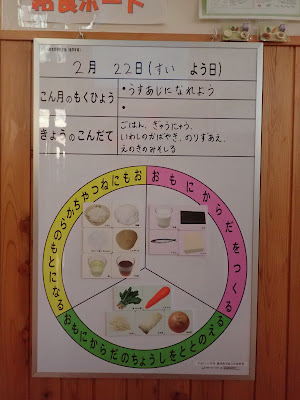 給食ボード
2月 22日(すい よう日)
こん月のもくひょう
・うすあじになれよう
・
きょうのこんだて
ごはん、ぎゅうにゅう、
いわしのかばやき、のりずあえ、
えのきのみそしる
おもにからだをつくる
おもにからだのちょうしをととのえる
おもにねつやちからのもとになる